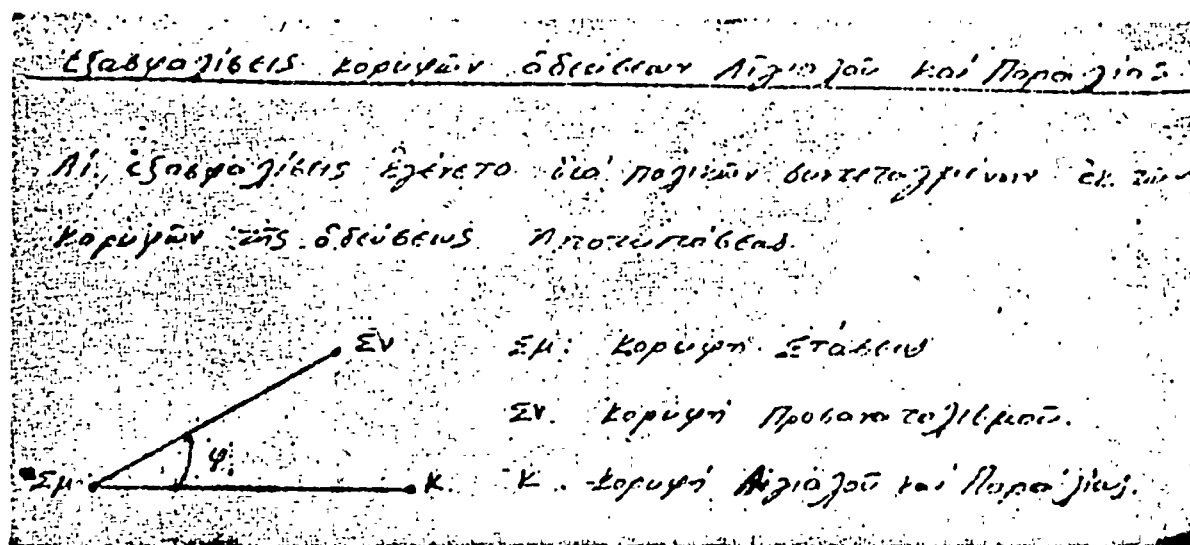 Ἐξασφαλίσεις κορυφῶν ὁδεύσεων Αἰγιαλοῦ καί Παραλίας
Αἱ ἐξασφαλίσεις ἐγένετο διά πολικῶν συντεταγμένων ἐκ τῶν
κορυφῶν τῆς ὁδεύσεως Ἀποτυπώσεως.
Σν Σμ: Κορυφή Στάσεως
Σν. Κορυφή Προσανατολισμοῦ.
φ
Σμ Κ. Κ. Κορυφή Αἰγιαλοῦ καί Παραλίας.